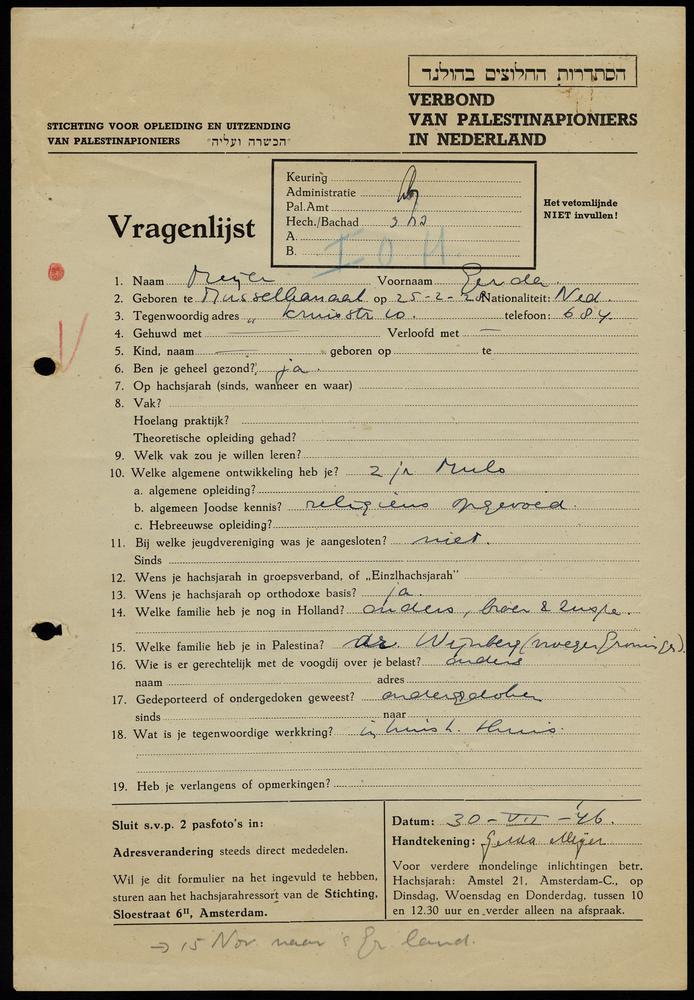 הסתדרות החלוצים בהולנד
VERBOND
VAN PALESTINAPIONIERS
IN NEDERLAND
STICHTING VOOR OPLEIDING EN UITZENDING
VAN PALESTINAPIONIERS "הכשרה ועליה"
Keuring
Administratie
Pal.Amt
Hech./Bachad
A.
B.
I O H.
Het vetomlijnde
NIET invullen!
Vragenlijst
1. Naam Meijer Voornaam Gerda.
2. Geboren te Musselkanaal op 25-2-28 Nationaliteit: Ned.
3. Tegenwoordig adres „ Kruisstr 60. telefoon: 684.
4. Gehuwd met — Verloofd met —
5. Kind, naam — geboren op te
6. Ben je geheel gezond? ja.
7. Op hachsjarah (sinds, wanneer en waar)
8. Vak?
Hoelang praktijk?
Theoretische opleiding gehad?
9. Welk vak zou je willen leren?
10. Welke algemene ontwikkeling heb je? 2 jr Mulo
a. algemene opleiding?
b. algemeen Joodse kennis? religieus opgevoed.
c. Hebreeuwse opleiding?
11. Bij welke jeugdvereniging was je aangesloten? niet.
Sinds
12. Wens je hachsjarah in groepsverband, of „Einzlhachsjarah"
13. Wens je hachsjarah op orthodoxe basis? ja.
14. Welke familie heb je nog in Holland? ouders, broer & zusje.
15. Welke familie heb je in Palestina? dr. Wijnberg (vroeger Groningen).
16. Wie is er gerechtelijk met de voogdij over je belast? ouders
naam adres
17. Gedeporteerd of ondergedoken geweest? ondergedoken
sinds naar
18. Wat is je tegenwoordige werkkring? in huish. thuis.
19. Heb je verlangens of opmerkingen?
Sluit s.v.p. 2 pasfoto's in:
Adresverandering steeds direct mededelen.
Wil je dit formulier na het ingevuld te hebben,
sturen aan het hachsjarahressort van de Stichting,
Sloestraat 6II, Amsterdam.
Datum: 30-VII-46.
Handtekening: Gerda Meijer
Voor verdere mondelinge inlichtingen betr.
Hachsjarah: Amstel 21, Amsterdam-C., op
Dinsdag, Woensdag en Donderdag, tussen 10
en 12.30 uur en verder alleen na afspraak.
→ 15 Nov. naar 's Gr land.